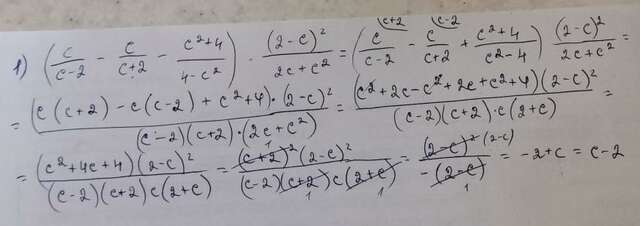 1) (c/(c-2) - c/(c+2) - (c²+4)/(4-c²)) · (2-c)²/(2c+c²) = (c^(c+2)/(c-2) - c^(c-2)/(c+2) + (c²+4)/(c²-4)) (2-c)²/(2c+c²) =
= (c(c+2) - c(c-2) + c²+4)·(2-c)²/((c-2)(c+2)·(2c+c²)) = (c²+2c-c²+2c+c²+4)(2-c)²/((c-2)(c+2)·c(2+c)) =
= (c²+4c+4)(2-c)²/((c-2)(c+2)c(2+c)) = (c+2)²(2-c)²/((c-2)(c+2)c(2+c)) = (2-c)²(2-c)/(-(2-c)) = -2+c = c-2